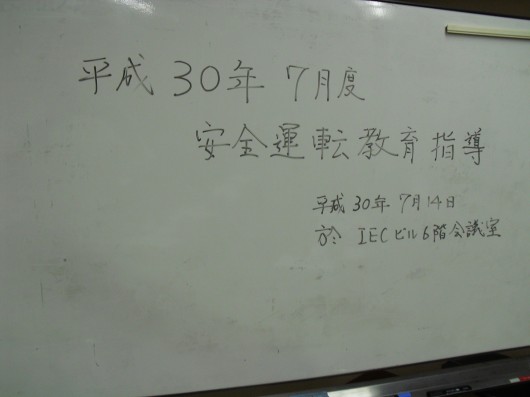 平成 30年 7月度
安全運転教育指導
平成 30年 7月14日
於 IECビル6階会議室